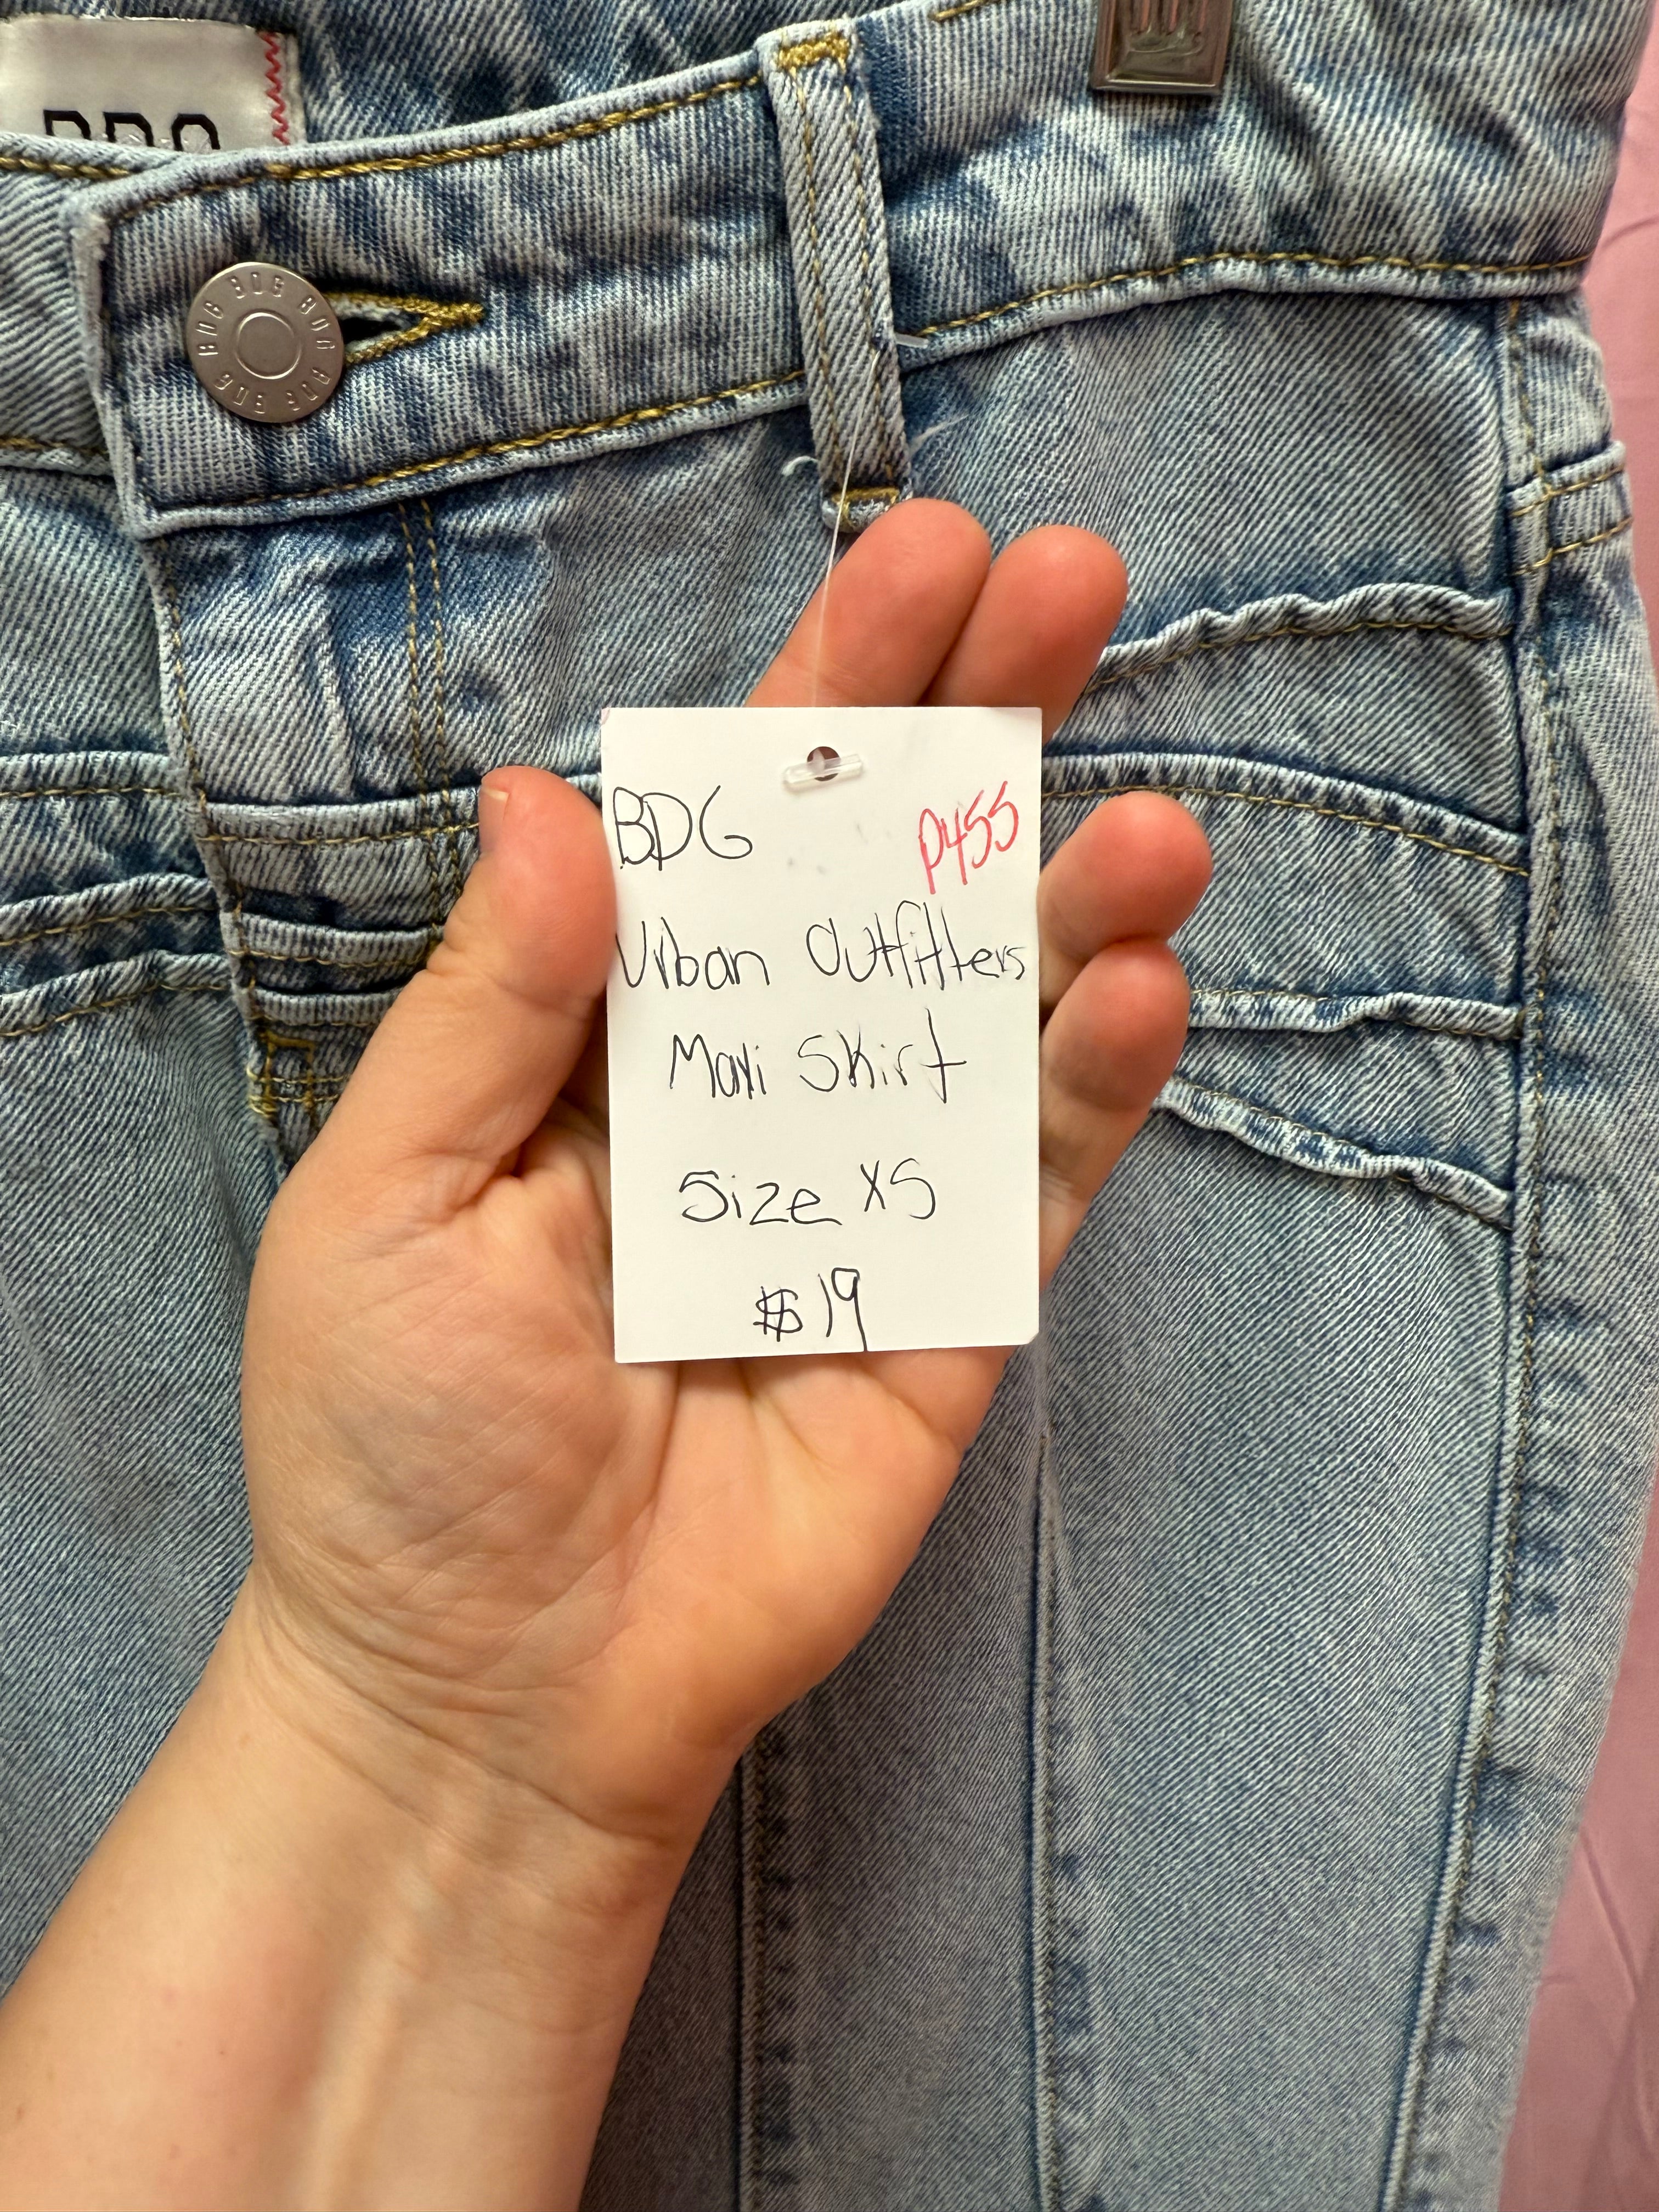 BDG
BDG BDG BDG BDG BDG BDG
BDG P455
Urban Outfitters
Maxi Skirt
Size XS
$19